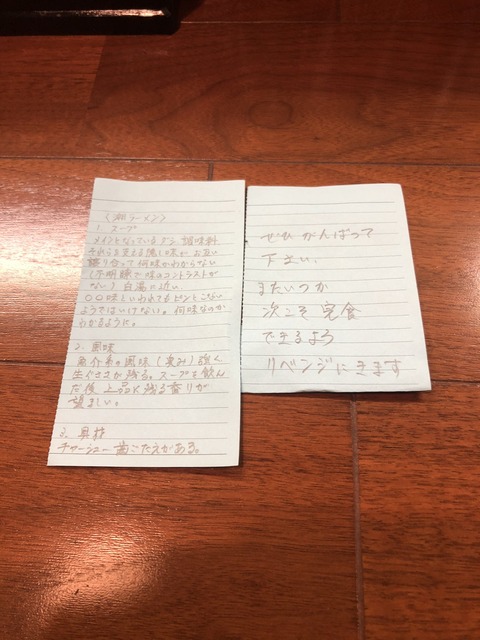 ラーメン〉
1. スープ
メインとなっているダシ、調味料
それらを支える隠し味が お互い
譲り合って何味かわからない
(不明瞭で味のコントラストが
ない) 白湯に近い
〇〇味といわれてもピンとこない
ようではいけない。何味なのか
わかるように。
2. 風味
魚介系の風味(臭み)強く
生ぐささが残る。スープを飲ん
だ後 上品に残る香りが
望ましい。
3. 具材
チャーシュー 歯ごたえがある。
ぜひがんばって
下さい、
またいつか
次こそ完食
できるよう
リベンジにきます